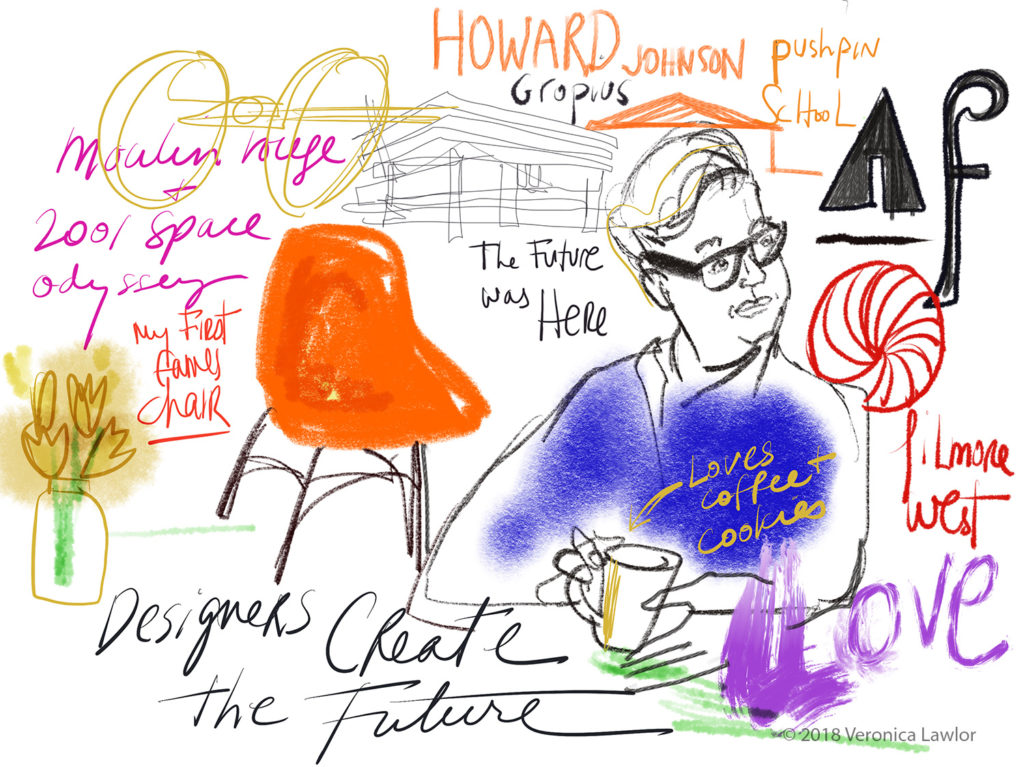 HOWARD JOHNSON
Gropius
pushpin
SCHOOL
Af
Moulin rouge
+
2001 Space
odyssey
The Future
was HERE
my FIRST
Eames
chaiR
Loves
coffee +
cookies
filmore
west
Love
DesigneRs CReate
the Future
© 2018 Veronica Lawlor